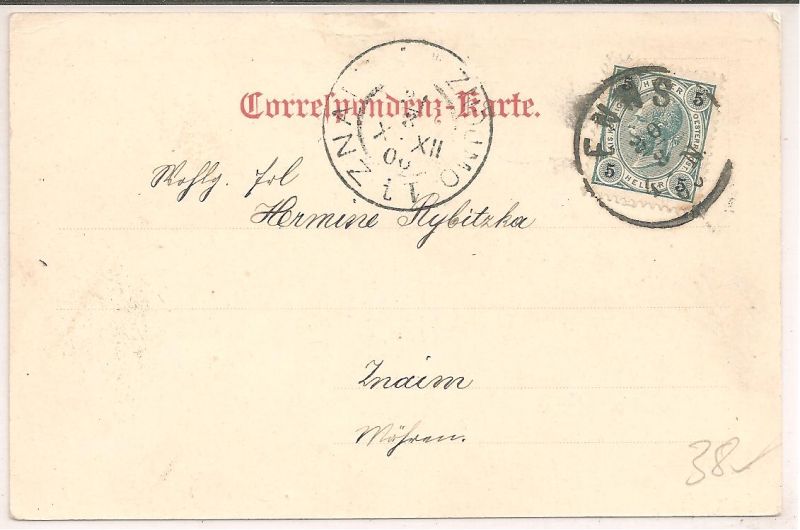 Correspondenz-Karte.
ZNAIM ZNOJMO
XII
00
1
5 HELLER 5
5 HELLER 5
Wohlg. Frl
Hermine Rybitzka
Znaim
Mähren.
38